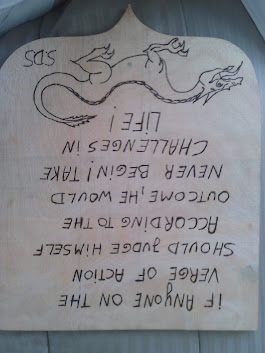 IF ANYONE ON THE
VERGE OF ACTION
SHOULD JUDGE HIMSELF
ACCORDING TO THE
OUTCOME, HE WOULD
NEVER BEGIN! TAKE
CHALLENGES IN
LIFE!
SDS